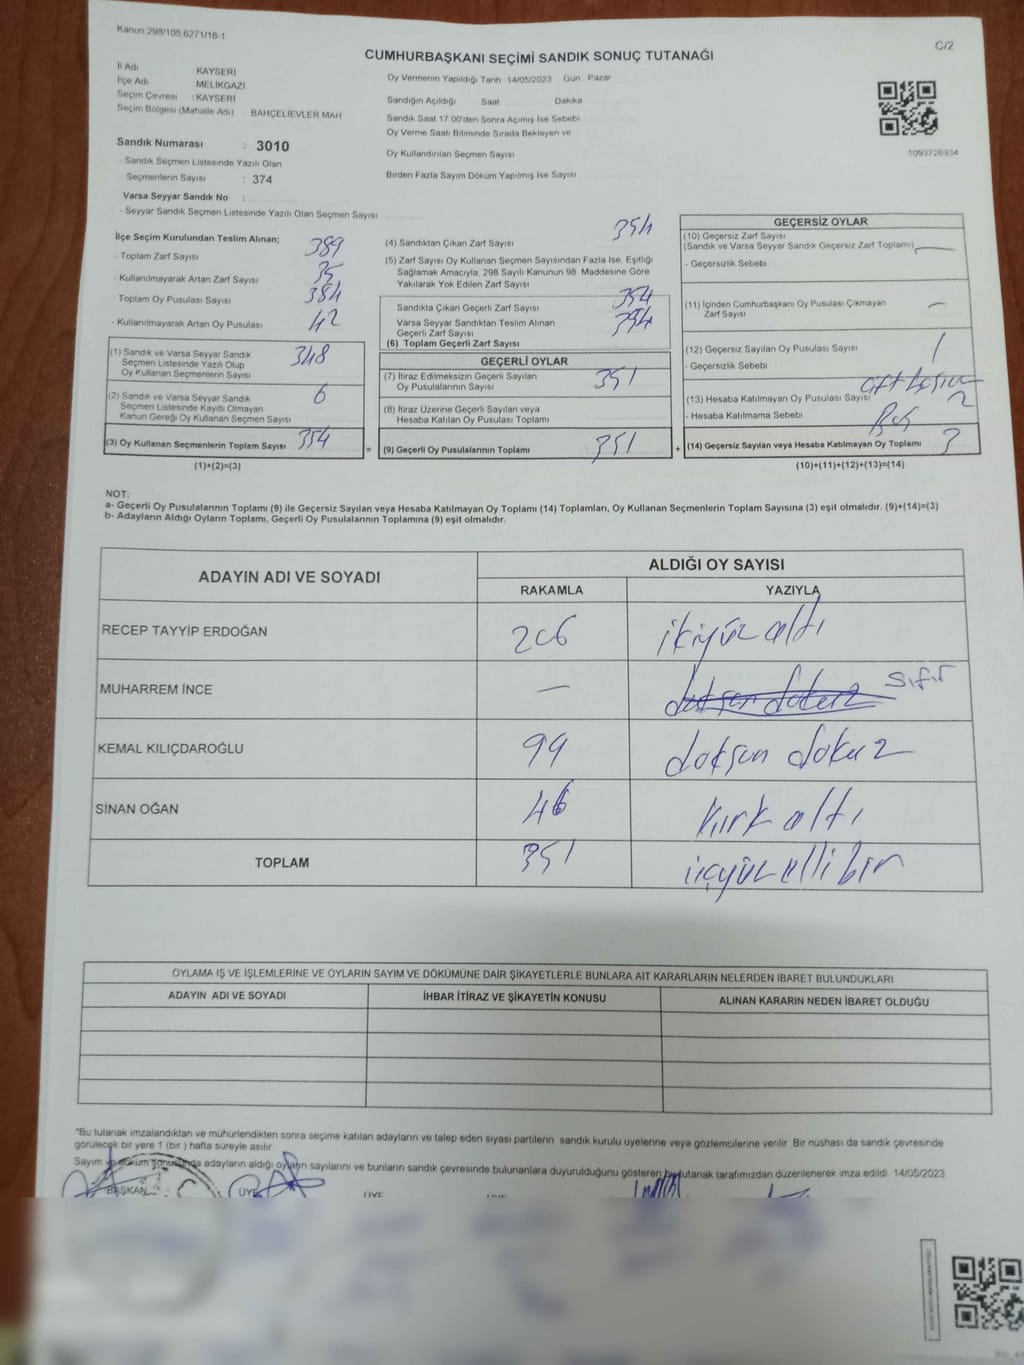 Kanun 298/105.6271/18-1
C/2
CUMHURBAŞKANI SEÇİMİ SANDIK SONUÇ TUTANAĞI
İl Adı KAYSERİ
İlçe Adı MELİKGAZİ
Seçim Çevresi : KAYSERİ
Seçim Bölgesi (Mahalle Adı) BAHÇELİEVLER MAH
Sandık Numarası : 3010
- Sandık Seçmen Listesinde Yazılı Olan
Seçmenlerin Sayısı : 374
Varsa Seyyar Sandık No :
- Seyyar Sandık Seçmen Listesinde Yazılı Olan Seçmen Sayısı
Oy Vermenin Yapıldığı Tarih 14/05/2023 Gün Pazar
Sandığın Açıldığı Saat Dakika
Sandık Saat 17 00'den Sonra Açımış İse Sebebi
Oy Verme Saati Bitiminde Sırada Bekleyen ve
Oy Kullandırılan Seçmen Sayısı
Birden Fazla Sayım Döküm Yapılmış İse Sayısı
1093726334
İlçe Seçim Kurulundan Teslim Alınan;
- Toplam Zarf Sayısı 389
- Kullanılmayarak Artan Zarf Sayısı 35
- Toplam Oy Pusulası Sayısı 384
- Kullanılmayarak Artan Oy Pusulası 42
(1) Sandık ve Varsa Seyyar Sandık 348
Seçmen Listesinde Yazılı Olup
Oy Kullanan Seçmenlerin Sayısı
(2) Sandık ve Varsa Seyyar Sandık 6
Seçmen Listesinde Kayıtlı Olmayan
Kanun Gereği Oy Kullanan Seçmen Sayısı
(3) Oy Kullanan Seçmenlerin Toplam Sayısı 354
(1)+(2)=(3)
(4) Sandıktan Çıkan Zarf Sayısı 354
(5) Zarf Sayısı Oy Kullanan Seçmen Sayısından Fazla İse, Eşitliği
Sağlamak Amacıyla, 298 Sayılı Kanunun 98 Maddesine Göre
Yakılarak Yok Edilen Zarf Sayısı
Sandıkta Çıkan Geçerli Zarf Sayısı 354
Varsa Seyyar Sandıktan Teslim Alınan
Geçerli Zarf Sayısı 354
(6) Toplam Geçerli Zarf Sayısı
GEÇERLİ OYLAR
(7) İtiraz Edilmeksizin Geçerli Sayılan
Oy Pusulalarının Sayısı 351
(8) İtiraz Üzerine Geçerli Sayılan veya
Hesaba Katılan Oy Pusulası Toplamı
= (9) Geçerli Oy Pusulalarının Toplamı 351 +
GEÇERSİZ OYLAR
(10) Geçersiz Zarf Sayısı
(Sandık ve Varsa Seyyar Sandık Geçersiz Zarf Toplamı) —
- Geçersizlik Sebebi
(11) İçinden Cumhurbaşkanı Oy Pusulası Çıkmayan —
Zarf Sayısı
(12) Geçersiz Sayılan Oy Pusulası Sayısı 1
- Geçersizlik Sebebi
(13) Hesaba Katılmayan Oy Pusulası Sayısı 2
- Hesaba Katılmama Sebebi Boş
(14) Geçersiz Sayılan veya Hesaba Katılmayan Oy Toplamı 3
(10)+(11)+(12)+(13)=(14)
NOT:
a- Geçerli Oy Pusulalarının Toplamı (9) ile Geçersiz Sayılan veya Hesaba Katılmayan Oy Toplamı (14) Toplamları, Oy Kullanan Seçmenlerin Toplam Sayısına (3) eşit olmalıdır. (9)+(14)=(3)
b- Adayların Aldığı Oyların Toplamı, Geçerli Oy Pusulalarının Toplamına (9) eşit olmalıdır.
ADAYIN ADI VE SOYADI
ALDIĞI OY SAYISI
RAKAMLA YAZIYLA
RECEP TAYYİP ERDOĞAN 206 ikiyüz altı
MUHARREM İNCE — doksan dokuz sıfır
KEMAL KILIÇDAROĞLU 99 doksan dokuz
SİNAN OĞAN 46 kırk altı
TOPLAM 351 üçyüz elli bir
OYLAMA İŞ VE İŞLEMLERİNE VE OYLARIN SAYIM VE DÖKÜMÜNE DAİR ŞİKAYETLERLE BUNLARA AİT KARARLARIN NELERDEN İBARET BULUNDUKLARI
ADAYIN ADI VE SOYADI İHBAR İTİRAZ VE ŞİKAYETİN KONUSU ALINAN KARARIN NEDEN İBARET OLDUĞU
*Bu tutanak imzalandıktan ve mühürlendikten sonra seçime katılan adayların ve talep eden siyasi partilerin sandık kurulu üyelerine veya gözlemcilerine verilir Bir nüshası da sandık çevresinde
görülecek bir yere 1 (bir ) hafta süreyle asılır
Sayım ve döküm sonucunda adayların aldığı oyların sayılarını ve bunların sandık çevresinde bulunanlara duyurulduğunu gösteren bu tutanak tarafımızdan düzenlenerek imza edildi. 14/05/2023
BAŞKAN ÜYE ÜYE